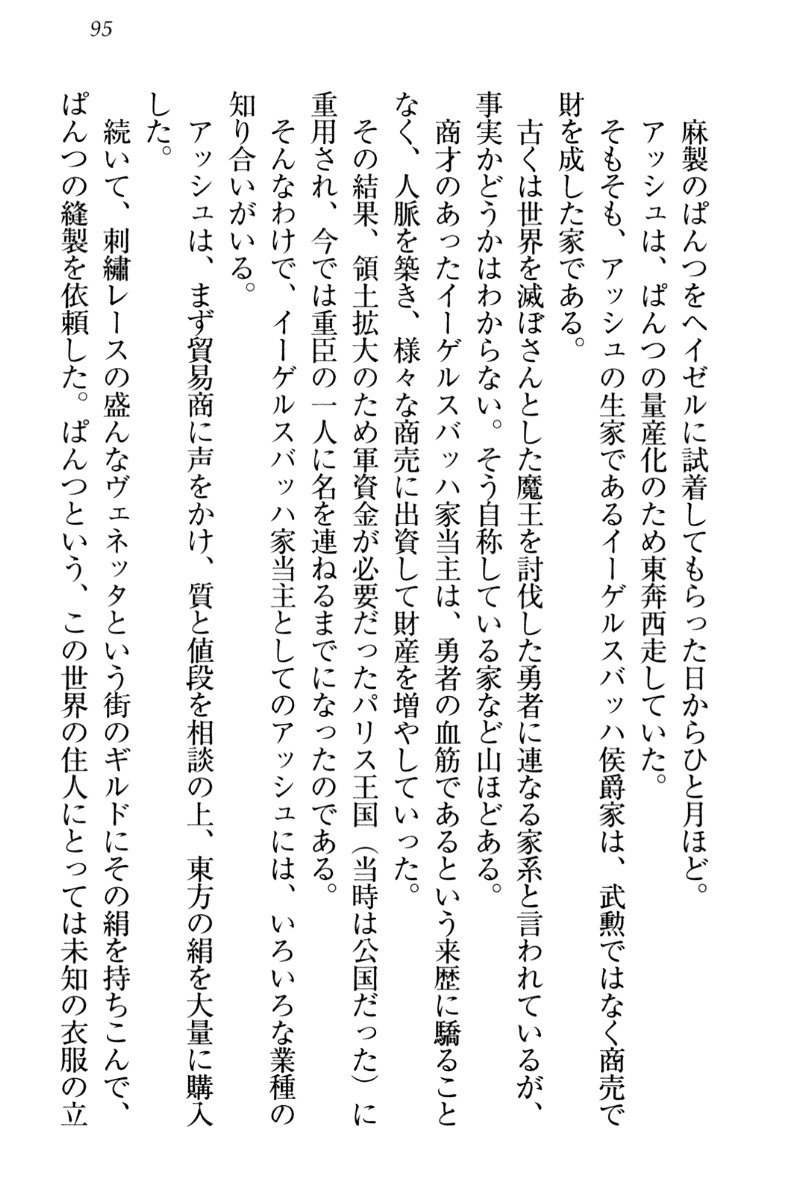 95
麻製のぱんつをヘイゼルに試着してもらった日からひと月ほど。
アッシュは、ぱんつの量産化のため東奔西走していた。
そもそも、アッシュの生家であるイーゲルスバッハ侯爵家は、武勲ではなく商売で
財を成した家である。
古くは世界を滅ぼさんとした魔王を討伐した勇者に連なる家系と言われているが、
事実かどうかはわからない。そう自称している家など山ほどある。
商才のあったイーゲルスバッハ家当主は、勇者の血筋であるという来歴に驕ること
なく、人脈を築き、様々な商売に出資して財産を増やしていった。
その結果、領土拡大のため軍資金が必要だったパリス王国（当時は公国だった）に
重用され、今では重臣の一人に名を連ねるまでになったのである。
そんなわけで、イーゲルスバッハ家当主としてのアッシュには、いろいろな業種の
知り合いがいる。
アッシュは、まず貿易商に声をかけ、質と値段を相談の上、東方の絹を大量に購入
した。
続いて、刺繍レースの盛んなヴェネッタという街のギルドにその絹を持ちこんで、
ぱんつの縫製を依頼した。ぱんつという、この世界の住人にとっては未知の衣服の立